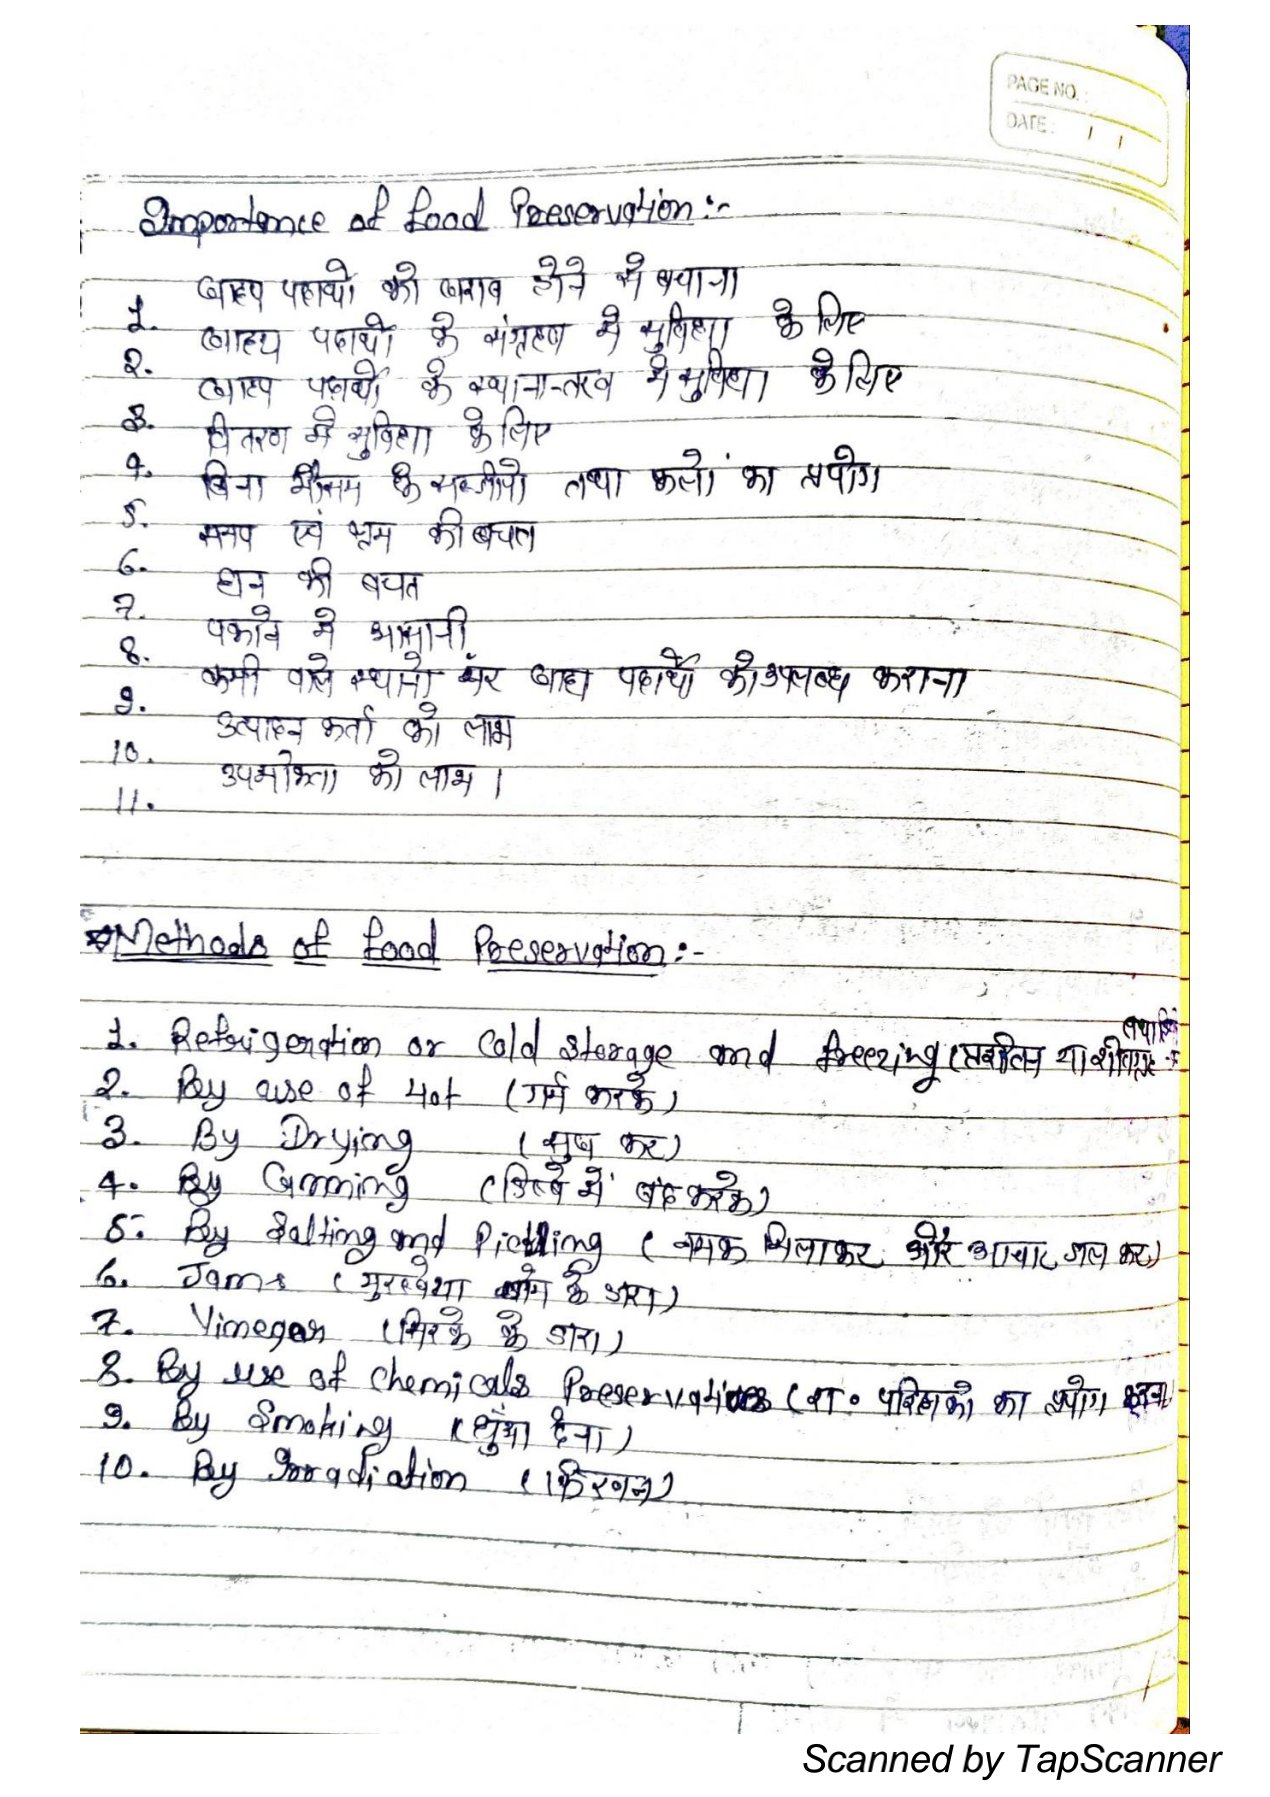 PAGE NO. :
DATE : / /
Importance of food Preservation :-
1. खाद्य पदार्थो को खराब होने से बचाना
2. खाद्य पदार्थो के संग्रहण में सुविधा के लिए
3. खाद्य पदार्थो के स्थानान्तरण में सुविधा के लिए
4. वितरण में सुविधा के लिए
5. बिना मौसम के सब्जीयो तथा फलों का उपयोग
6. समय एवं श्रम की बचत
7. धन की बचत
8. पकाने में आसानी
9. कमी वाले स्थानो पर खाद्य पदार्थो को उपलब्ध कराना
10. उत्पादन कर्ता को लाभ
11. उपभोक्ता को लाभ ।
Methods of food Preservation :-
1. Refrigeration or Cold Storage and freezing (
2. By use of Hot (गर्म करके)
3. By Drying (सुखा कर)
4. By Canning (डिब्बे में बंद करके)
5. By Salting and Pickling (नमक मिलाकर और आचार डाल कर)
6. Jams (मुरब्बे के द्वारा)
7. Vinegar (सिरके के द्वारा)
8. By use of chemicals Preservatives (रा. परिरक्षको का उपयोग करना
9. By Smoking (धुँआ देना)
10. By Irradiation (किरणन)
Scanned by TapScanner